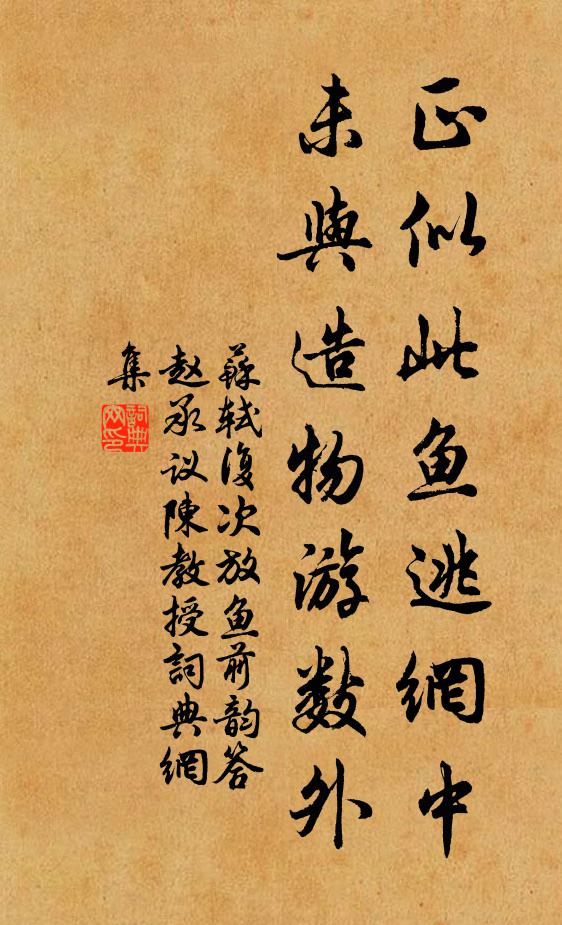 正似此鱼逃網中
未與造物游数外
蘇轼復次放鱼前韵答
赵承议陳教授詞典網
集
詞典網印